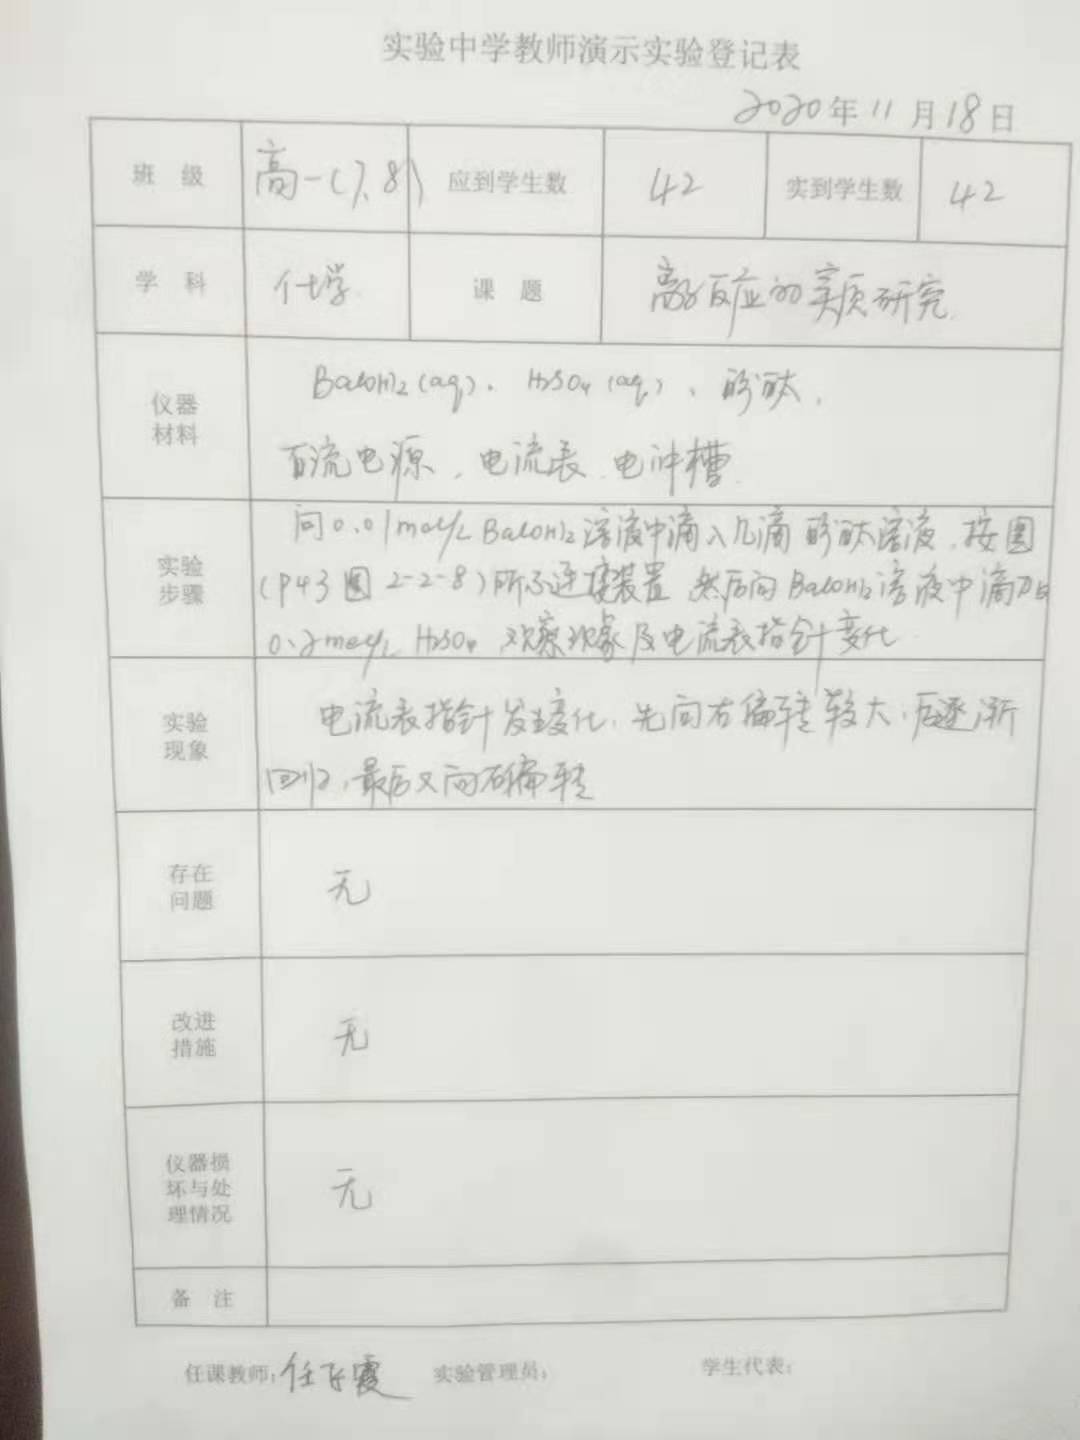 实验中学教师演示实验登记表
2020年11月18日
班 级 高一(7、8) 应到学生数 42 实到学生数 42
学 科 化学 课 题 离子反应的实质研究
仪器
材料
Ba(OH)2(aq)、H2SO4(aq)、酚酞,
直流电源、电流表、电冲槽
实验
步骤
向0.01mol/L Ba(OH)2溶液中滴入几滴酚酞溶液,按图
(P43图2-2-8)所示连接装置 然后向Ba(OH)2溶液中滴加
0.2mol/L H2SO4 观察现象及电流表指针变化
实验
现象
电流表指针发生变化,先向右偏转较大,后逐渐
回归,最后又向右偏转
存在
问题
无
改进
措施
无
仪器损
坏与处
理情况
无
备 注
任课教师:任 霞 实验管理员: 学生代表: